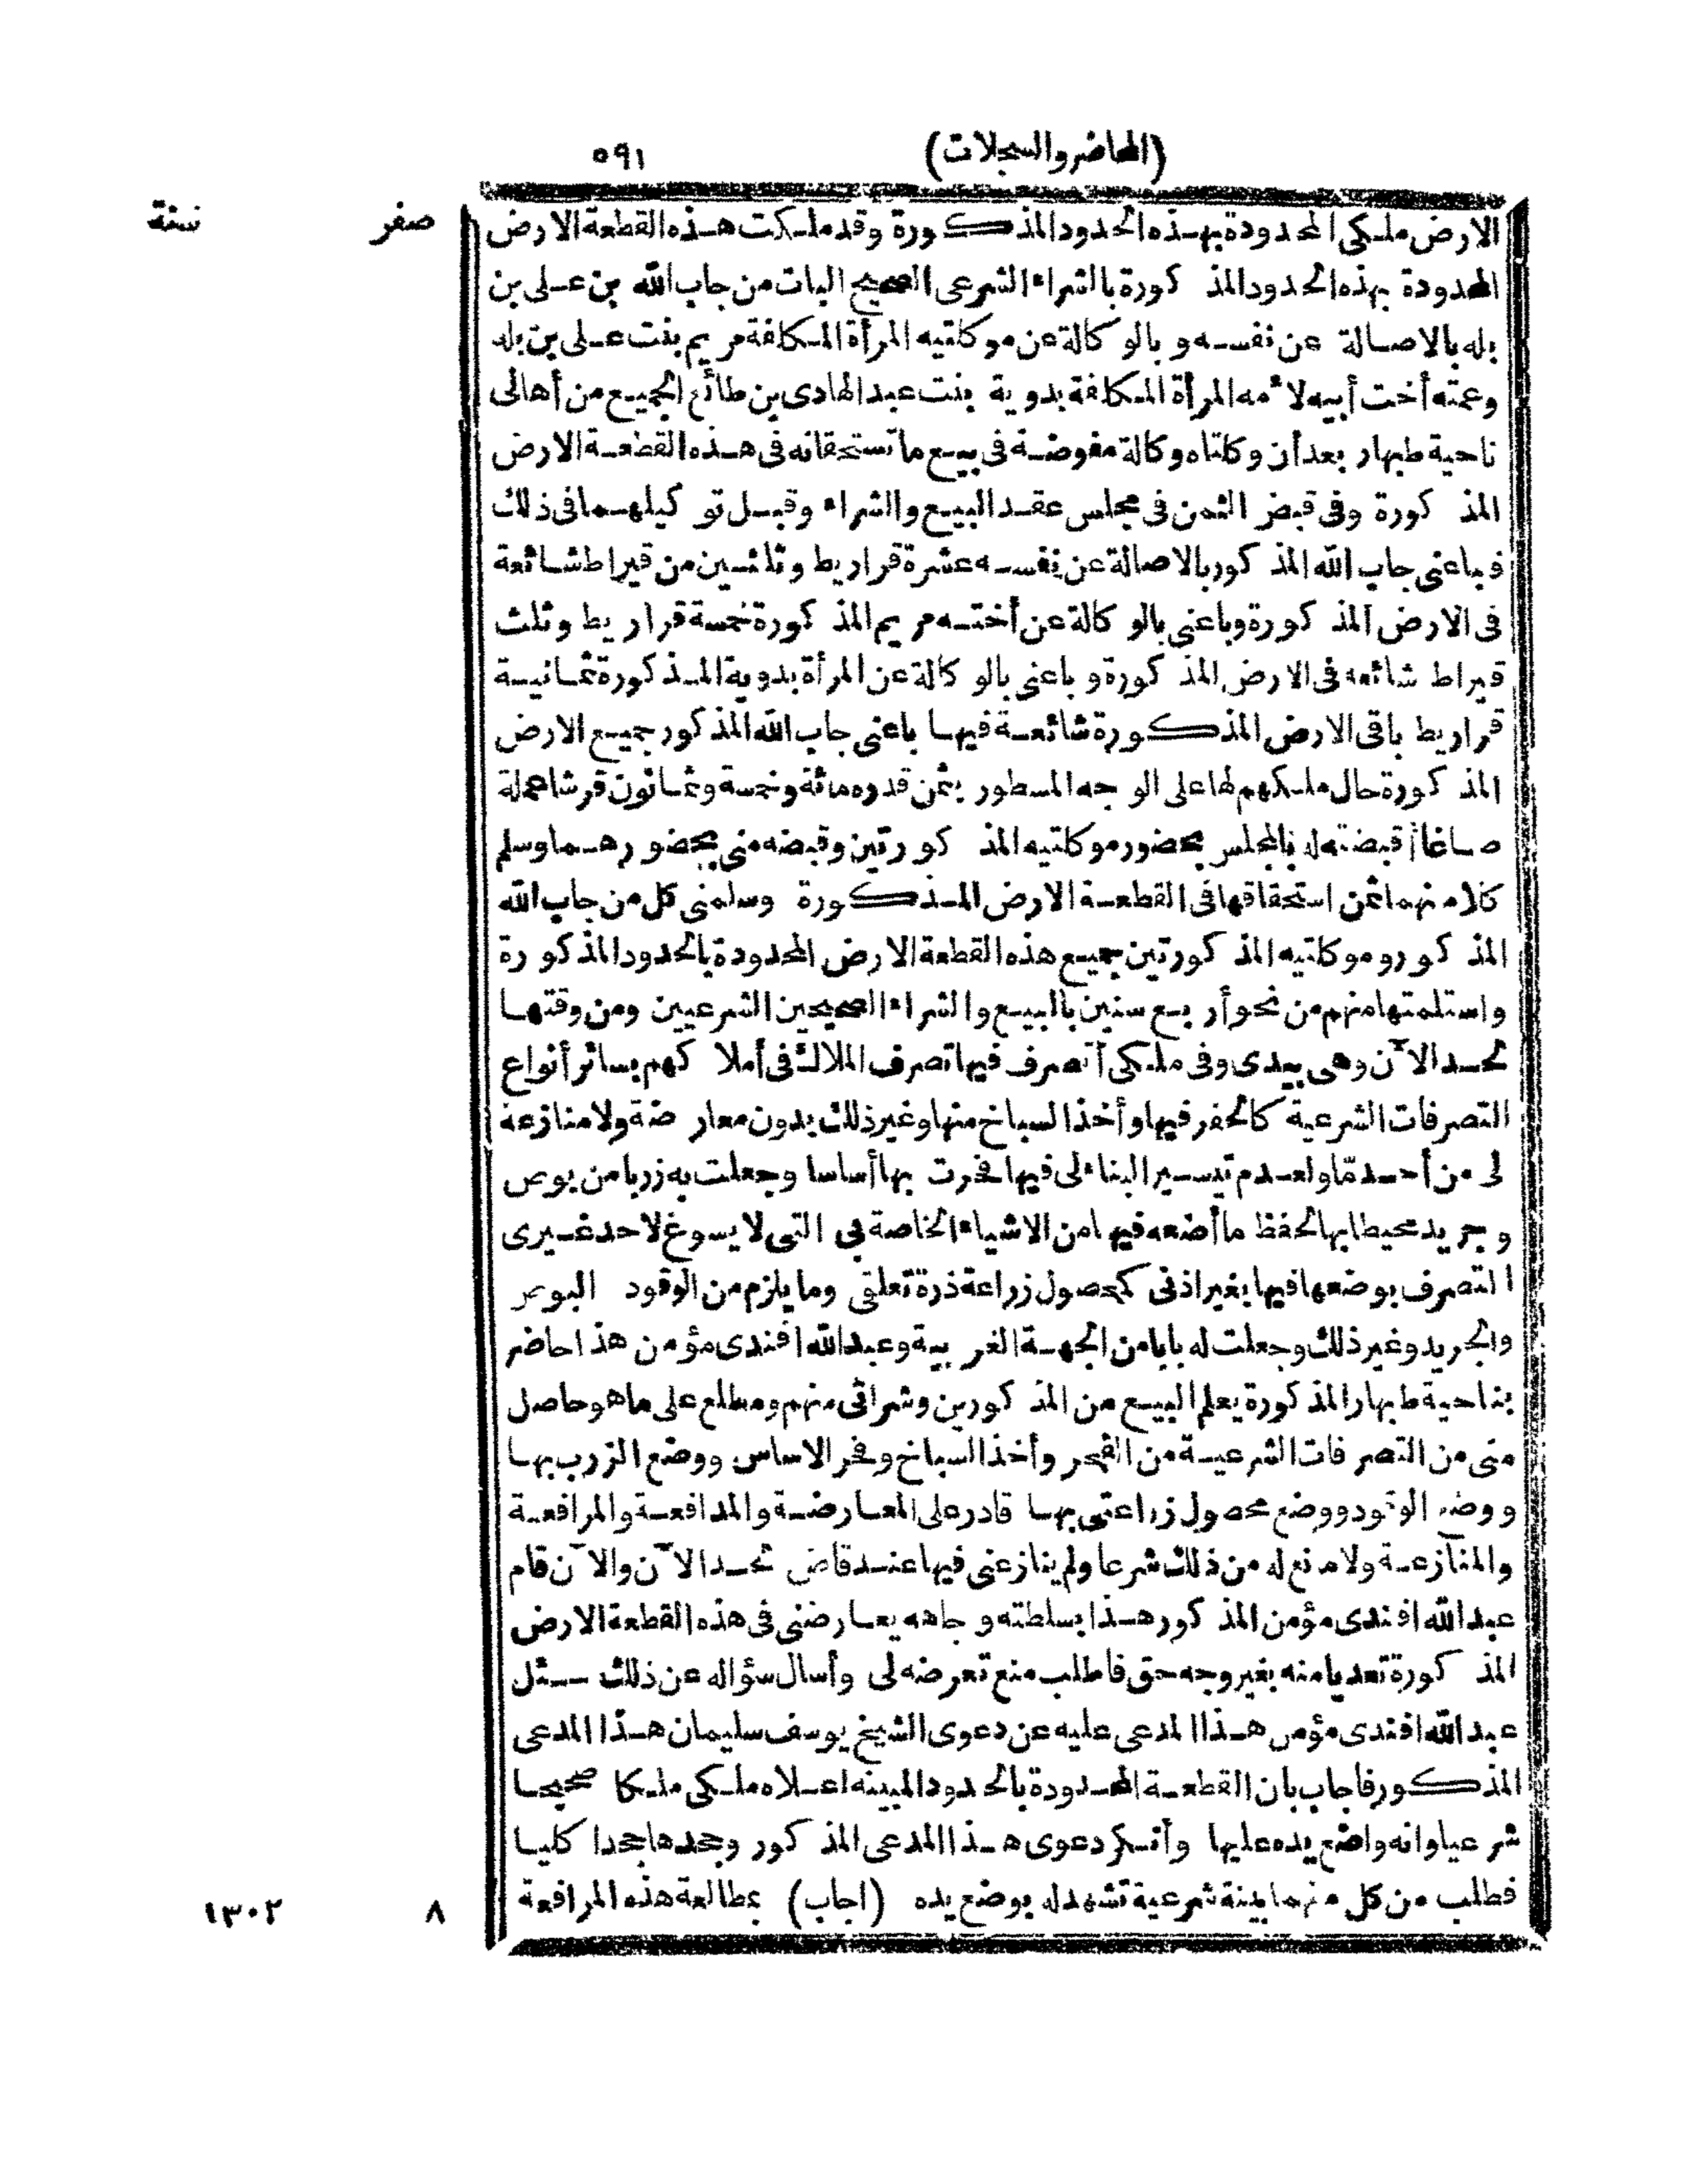 (المحاضر والسجلات) ٥٩١
صفر سنة
الارض ملكى المحدودة بهذه الحدود المذكورة وقد ملكت هذه القطعة الارض
المحدودة بهذه الحدود المذكورة بالشراء الشرعى الصحيح البات من جاب الله بن على بن
بله بالاصالة عن نفسه و بالوكالة عن موكلتيه المرأة المكلفة مريم بنت على بن بله
وعمته أخت أبيه لأمه المرأة المكلفة بدوية بنت عبد الهادى بن طائع الجميع من أهالى
ناحية طبهار بعد أن وكلتاه وكالة مفوضة فى بيع ما تستحقانه فى هذه القطعة الارض
المذكورة وفى قبض الثمن فى مجلس عقد البيع والشراء وقبل توكيلهما فى ذلك
فباعنى جاب الله المذكور بالاصالة عن نفسه عشرة قراريط وثلثين من قيراط شائعة
فى الارض المذكورة وباعنى بالوكالة عن أخته مريم المذكورة خمسة قراريط وثلث
قيراط شائعه فى الارض المذكورة وباعنى بالوكالة عن المرأة بدوية المذكورة ثمانية
قراريط باقى الارض المذكورة شائعة فيها باعنى جاب الله المذكور جميع الارض
المذكورة حال ملكهم لها على الوجه المسطور بثمن قدره مائة وخمسة وثمانون قرشا عملة
صاغا أقبضته له بالمجلس بحضور موكلتيه المذكورتين وقبضه منى بحضورهما وسلم
كلا منهما ثمن استحقاقها فى القطعة الارض المذكورة وسلمنى كل من جاب الله
المذكور وموكلتيه المذكورتين جميع هذه القطعة الارض المحدودة بالحدود المذكورة
واستلمتها منهم من نحو أربع سنين بالبيع والشراء الصحيحين الشرعيين ومن وقتها
لحد الآن وهى بيدى وفى ملكى أتصرف فيها تصرف الملاك فى أملاكهم بسائر أنواع
التصرفات الشرعية كالحفر فيها وأخذ السباخ منها وغير ذلك بدون معارضة ولا منازعة
لى من أحد مّا ولعدم تيسير البناء لى فيها فحرت بها أساسا وجعلت به زربا من بوص
وجريد محيطا بها لحفظ ما أضعه فيها من الاشياء الخاصة بى التى لا يسوغ لاحد غيرى
التصرف بوضعها فيها بغير اذنى كمحصول زراعة ذرة تعلقى وما يلزم من الوقود البوص
والجريد وغير ذلك وجعلت له بابا من الجهة الغربية وعبد الله افندى مؤمن هذا حاضر
بناحية طبهار المذكورة يعلم البيع من المذكورين وشرائى منهم ومطلع على ما هو حاصل
منى من التصرفات الشرعية من الفحر وأخذ السباخ وفحر الاساس ووضع الزرب بها
ووضع الوقود ووضع محصول زراعتى بها قادر على المعارضة والمدافعة والمرافعة
والمنازعة ولا مانع له من ذلك شرعا ولم ينازعنى فيها عند قاض لحد الآن والآن قام
عبد الله افندى مؤمن المذكور هذا بسلطته وجاهه يعارضنى فى هذه القطعة الارض
المذكورة تعديا منه بغير وجه حق فاطلب منع تعرضه لى وأسال سؤاله عن ذلك سئل
عبد الله افندى مؤمن هذا المدعى عليه عن دعوى الشيخ يوسف سليمان هذا المدعى
المذكور فاجاب بان القطعة المحدودة بالحدود المبينه اعلاه ملكى ملكا صحيحا
شرعيا وانه واضع يده عليها وأنكر دعوى هذا المدعى المذكور وجحدها جحدا كليا
فطلب من كل منهما بينة شرعية تشهد له بوضع يده (اجاب) بمطالعة هذه المرافعة
٨ ١٣٠٢